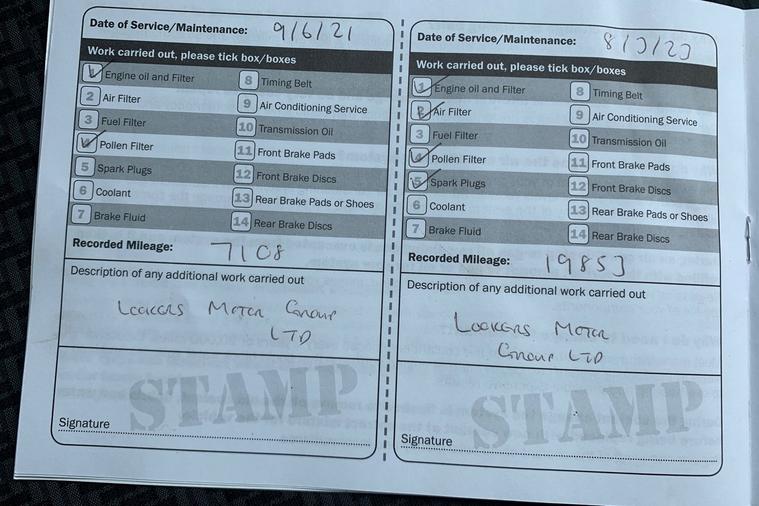 Date of Service/Maintenance: 9/6/21
Work carried out, please tick box/boxes
1 Engine oil and Filter
2 Air Filter
3 Fuel Filter
4 Pollen Filter
5 Spark Plugs
6 Coolant
7 Brake Fluid
8 Timing Belt
9 Air Conditioning Service
10 Transmission Oil
11 Front Brake Pads
12 Front Brake Discs
13 Rear Brake Pads or Shoes
14 Rear Brake Discs
Recorded Mileage: 7108
Description of any additional work carried out
LOOKERS MOTOR GROUP
LTD
STAMP
Signature
Date of Service/Maintenance: 8/3/23
Work carried out, please tick box/boxes
1 Engine oil and Filter
2 Air Filter
3 Fuel Filter
4 Pollen Filter
5 Spark Plugs
6 Coolant
7 Brake Fluid
8 Timing Belt
9 Air Conditioning Service
10 Transmission Oil
11 Front Brake Pads
12 Front Brake Discs
13 Rear Brake Pads or Shoes
14 Rear Brake Discs
Recorded Mileage: 19853
Description of any additional work carried out
LOOKERS MOTOR
GROUP LTD
STAMP
Signature